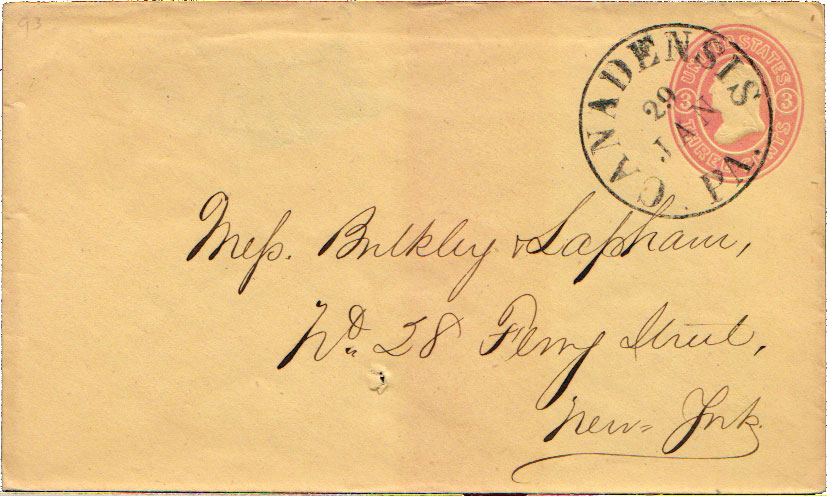 93
UNITED STATES
3 3
THREE CENTS
CANADENSIS
29
JAN
PA.
Meſs. Bulkley & Lapham,
No. 28 Ferry Street,
New-York.